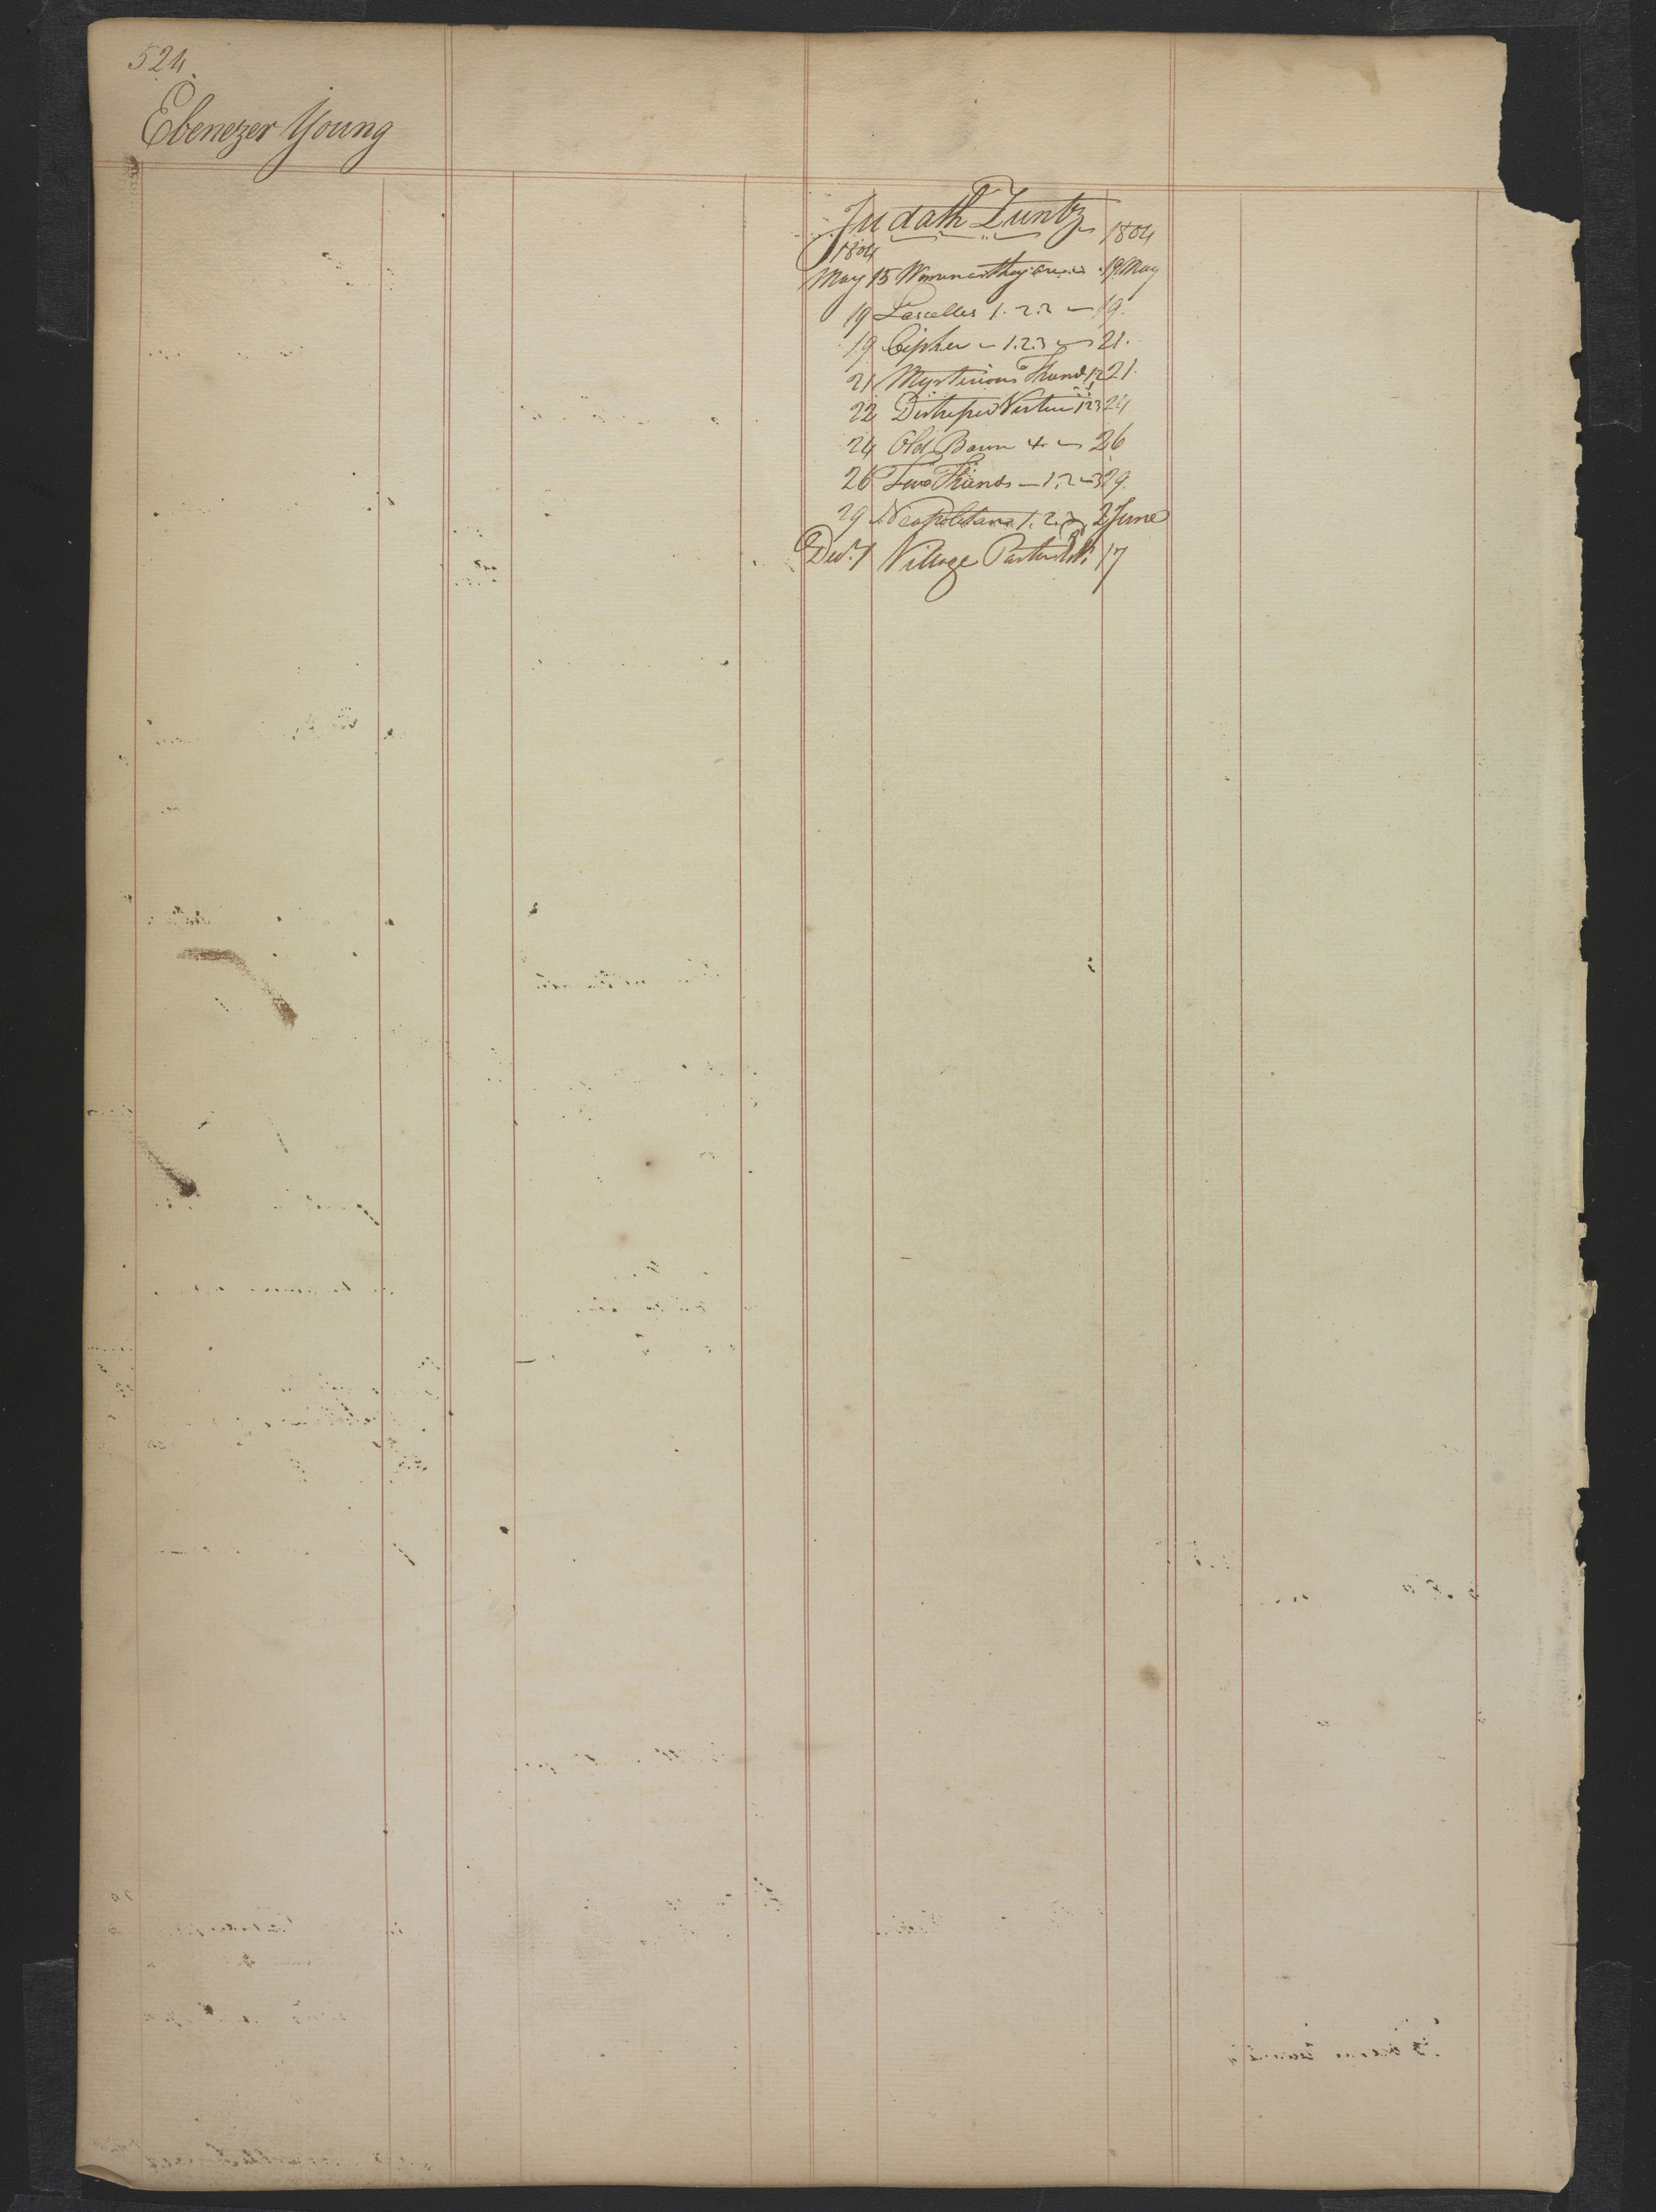 524
Ebenezer Young
Judath Zuntz
1804 1804
May 15 Woman as they are 19 May
19 Lascelles 1. 2. 3 19.
19 Cipher 1. 2 3 21.
21 Mysterious Friend 1 2 21.
22 Distressed Virtue 1 2 3 24
24 Old Baron 4 26
26 Two Friends 1. 2 3 29.
29 Neapolitan 1. 2. 3 2 June
Decr. 7 Village Pastor 17